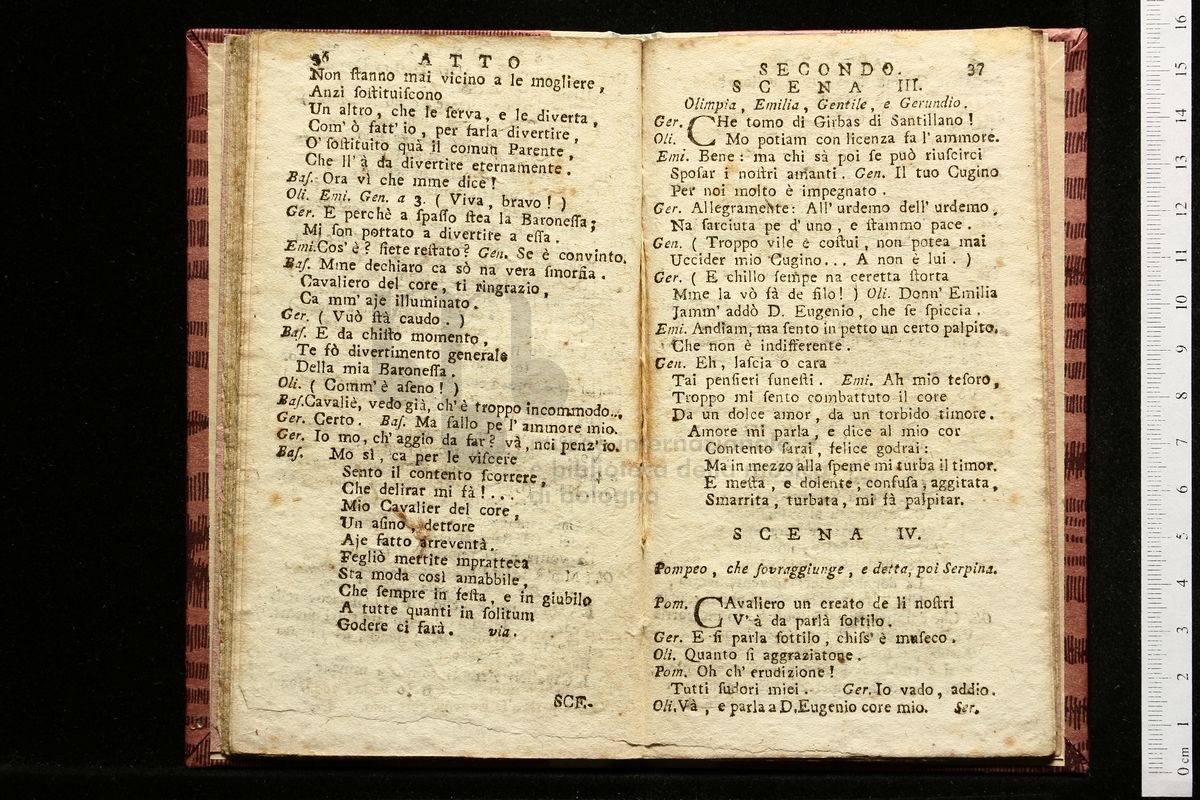 36 ATTO
Non ſtanno mai vicino a le mogliere,
Anzi ſoſtituiſcono
Un altro, che le ſerva, e le diverta,
Com' ò fatt' io, per farla divertire,
O' ſoſtituito quà il comun Parente,
Che ll' à da divertire eternamente.
Baſ. Ora vì che mme dice!
Oli. Emi. Gen. a 3. ( Viva, bravo! )
Ger. E perchè a ſpaſſo ſtea la Baroneſſa;
Mi ſon portato a divertire a eſſa.
Emi. Cos' è? ſiete reſtato? Gen. Se è convinto.
Baſ. Mme dechiaro ca sò na vera ſmorfia.
Cavaliero del core, ti ringrazio,
Ca mm' aje illuminato.
Ger. ( Vuò ſtà caudo. )
Baſ. E da chiſto momento,
Te fò divertimento generale
Della mia Baroneſſa.
Oli. ( Comm' è aſeno! )
Baſ. Cavaliè, vedo già, ch' è troppo incommodo...
Ger. Certo. Baſ. Ma fallo pe l' ammore mio.
Ger. Io mo, ch' aggio da far? và, nci penz' io.
Baſ. Mo sì, ca per le viſcere
Sento il contento ſcorrere,
Che delirar mi fà!...
Mio Cavalier del core,
Un aſino, dottore
Aje fatto arreventà.
Pegliò mettite mpratteca
Sta moda così amabbile,
Che ſempre in feſta, e in giubilo
A tutte quanti in ſolitum
Godere ci farà. via.
SCE-
SECONDO. 37
SCENA III.
Olimpia, Emilia, Gentile, e Gerundio.
Ger. CHe tomo di Girbas di Santillano!
Oli. Mo potiam con licenza fa l' ammore.
Emi. Bene: ma chi sà poi ſe può riuſcirci
Spoſar i noſtri amanti. Gen. Il tuo Cugino
Per noi molto è impegnato.
Ger. Allegramente: All' urdemo dell' urdemo,
Na farciuta pe d' uno, e ſtammo pace.
Gen. ( Troppo vile è coſtui, non potea mai
Uccider mio Cugino... A non è lui. )
Ger. ( E chillo ſempe na ceretta ſtorta
Mme la vò fà de filo! ) Oli. Donn' Emilia
Jamm' addò D. Eugenio, che ſe ſpiccia.
Emi. Andiam, ma ſento in petto un certo palpito,
Che non è indifferente.
Gen. Eh, laſcia o cara
Tai penſieri funeſti. Emi. Ah mio teſoro,
Troppo mi ſento combattuto il core
Da un dolce amor, da un torbido timore.
Amore mi parla, e dice al mio cor
Contento ſarai, felice godrai:
Ma in mezzo alla ſpeme mi turba il timor.
E meſta, e dolente, confuſa, aggitata,
Smarrita, turbata, mi fà palpitar.
SCENA IV.
Pompeo, che ſovraggiunge, e detta, poi Serpina.
Pom. CAvaliero un creato de li noſtri
V' à da parlà ſottilo.
Ger. E ſi parla ſottilo, chiſs' è muſeco.
Oli. Quanto ſi aggraziatone.
Pom. Oh ch' erudizione!
Tutti ſudori miei. Ger. Io vado, addio.
Oli. Và, e parla a D. Eugenio core mio. Ser.
internazionale
e biblioteca della musica
di bologna
0 cm 1 2 3 4 5 6 7 8 9 10 11 12 13 14 15 16